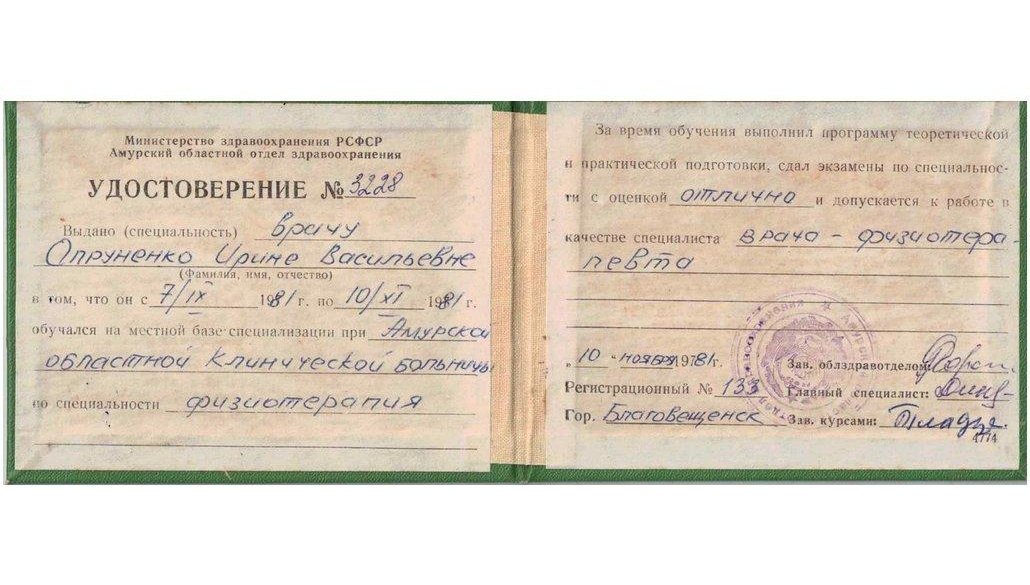 Министерство здравоохранения РСФСР
Амурский областной отдел здравоохранения
УДОСТОВЕРЕНИЕ № 3228
Выдано (специальность) врачу
Опруненко Ирине Васильевне
(Фамилия, имя, отчество)
в том, что он с 7/IX 1981 г. по 10/XI 1981 г.
обучался на местной базе специализации при Амурской
областной клинической больницы
по специальности физиотерапия
За время обучения выполнил программу теоретической
и практической подготовки, сдал экзамены по специальнос-
ти с оценкой отлично и допускается к работе в
качестве специалиста врача - физиотера-
певта
„10 ноября 1981 г. Зав. облздравотделом:
Регистрационный № 133 Главный специалист:
Гор. Благовещенск Зав. курсами: